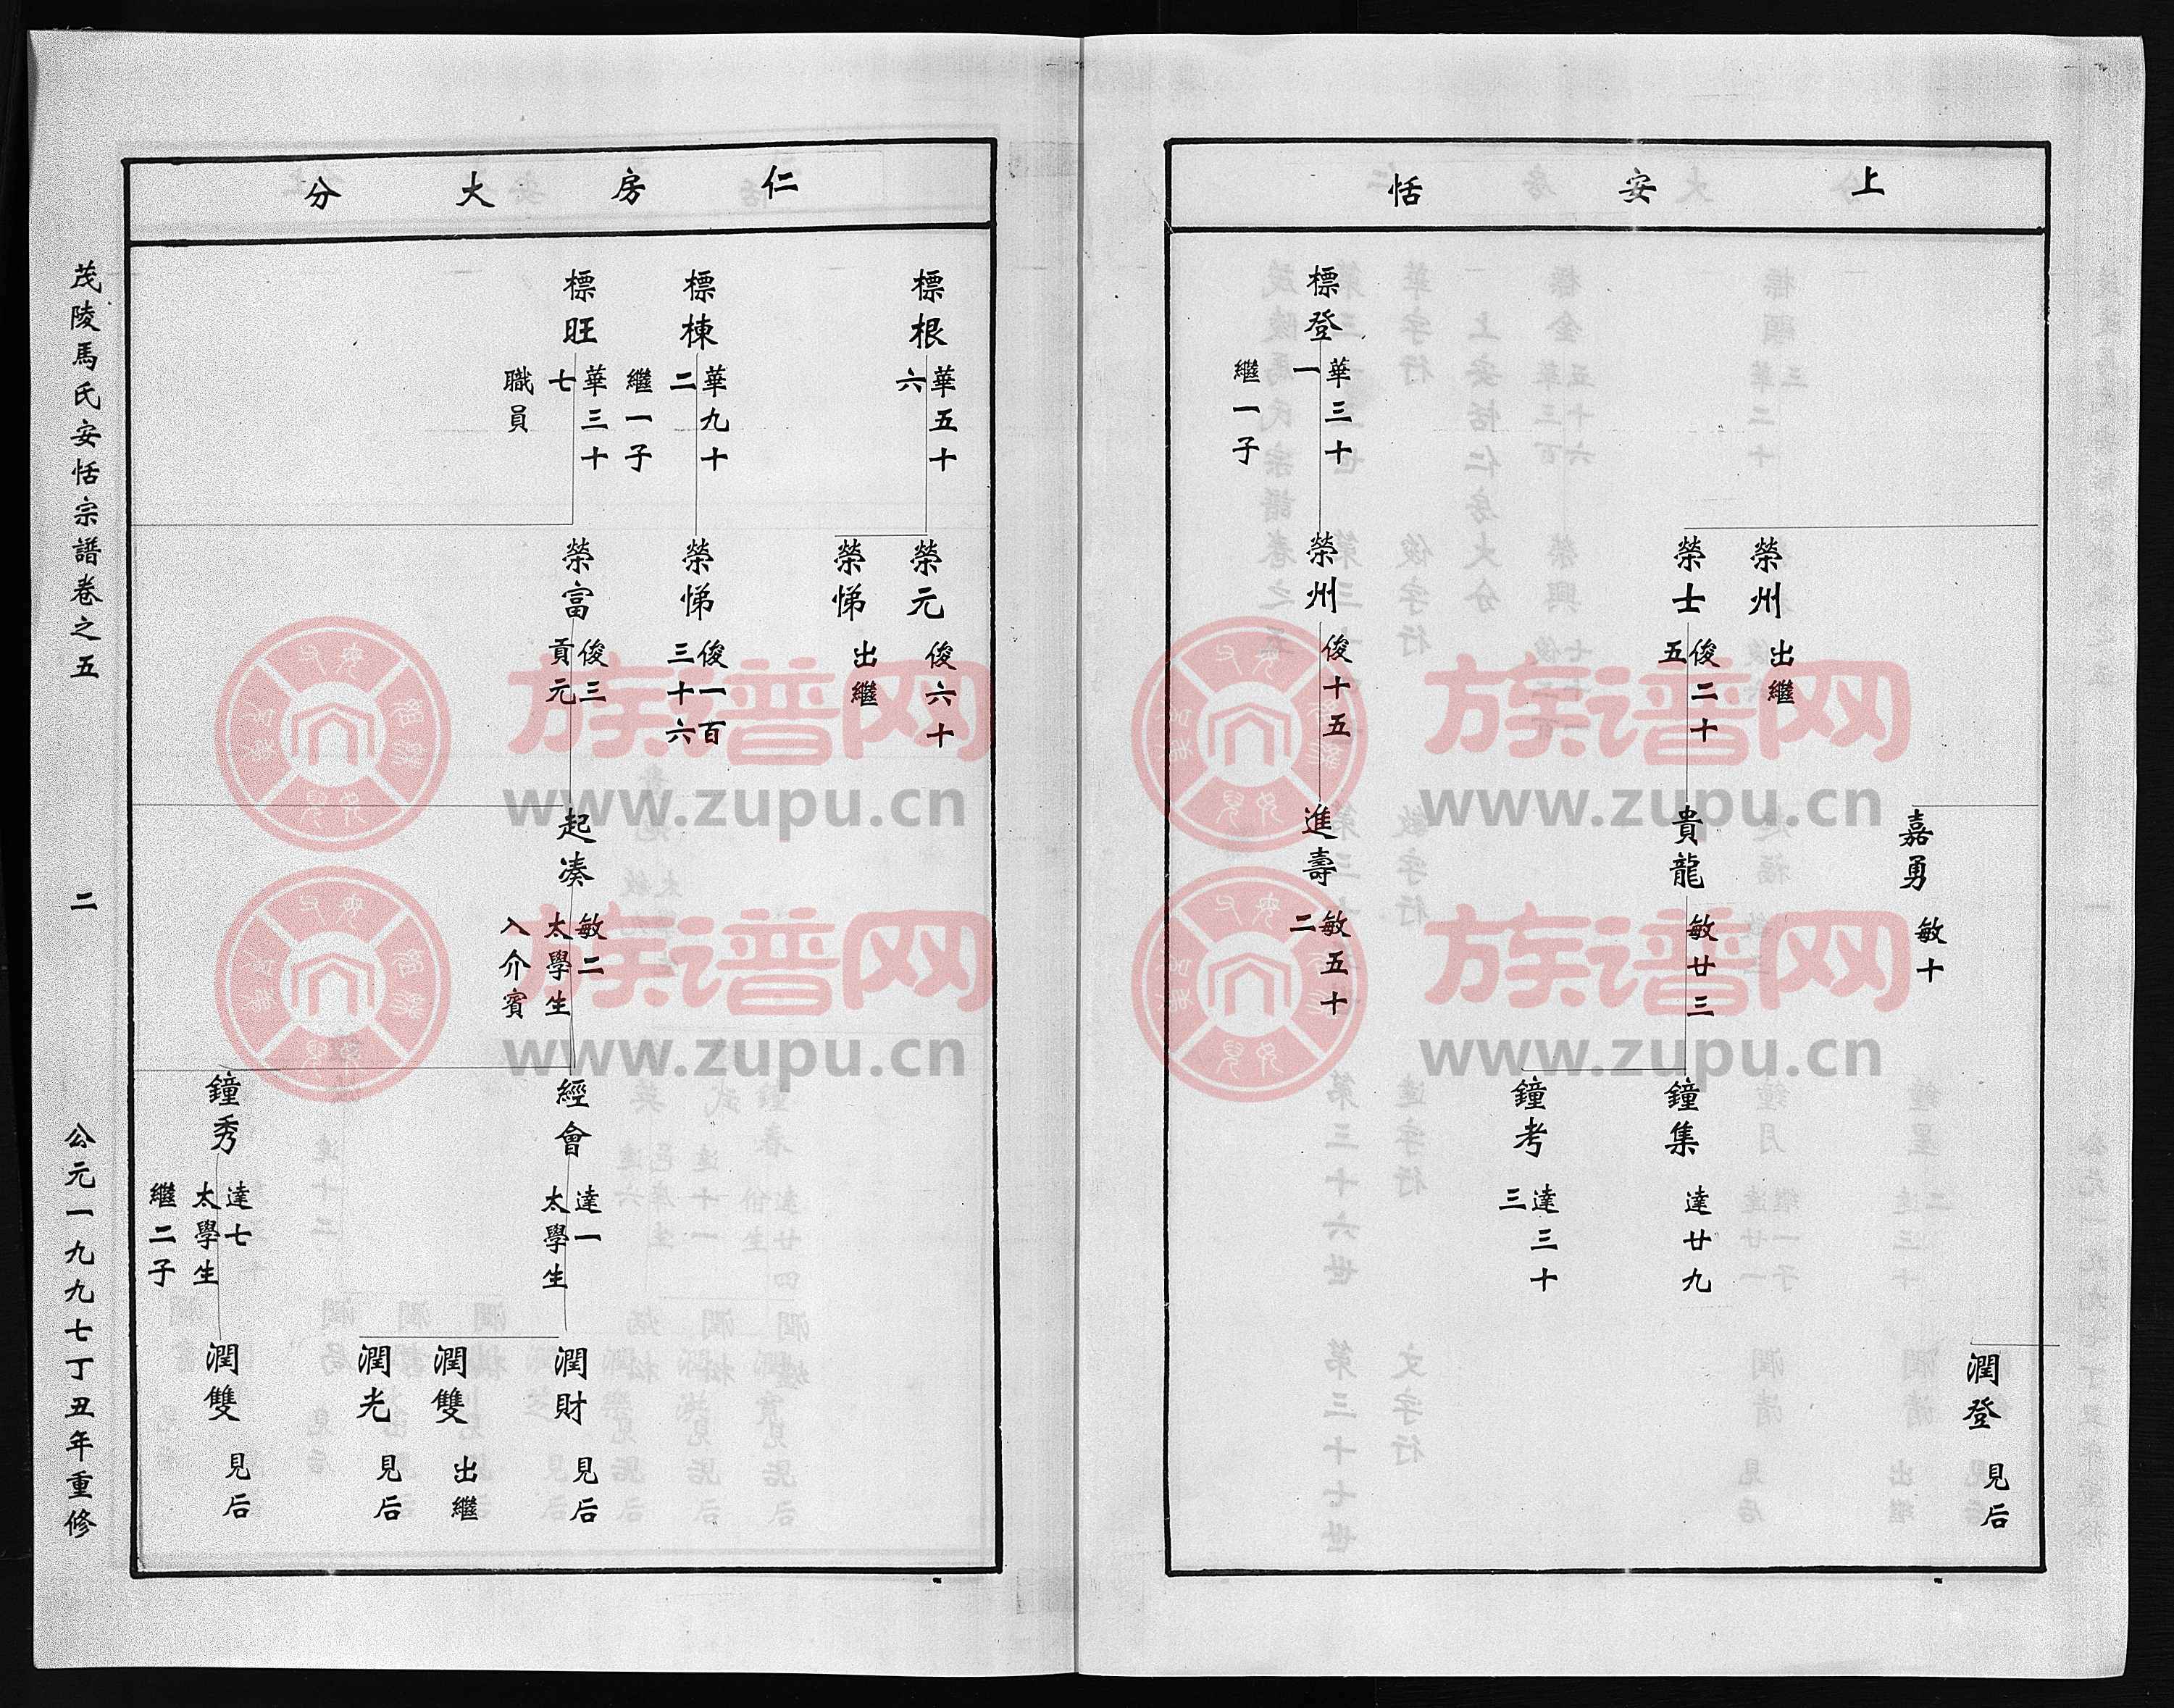 上安恬
潤登 見后
嘉勇 敏十
榮州 出繼
榮士 俊二十五
貴龍 敏廿三
鐘集 達廿九
鐘考 達三十三
標登 華三十一 繼一子
榮州 俊十五
進壽 敏五十二
仁房大分
標根 華五十六
榮元 俊六十
榮悌 出繼
標棟 華九十二 繼一子
榮悌 俊一百三十六
標旺 華三十七 職員
榮富 俊三 貢元
起湊 敏二 太學生 入介賓
經會 達一 太學生
潤財 見后
潤雙 出繼
潤光 見后
鐘秀 達七 太學生 繼二子
潤雙 見后
茂陵馬氏安恬宗譜卷之五 二 公元一九九七丁丑年重修
族谱网
www.zupu.cn
族谱网
www.zupu.cn
族谱网
www.zupu.cn
族谱网
www.zupu.cn